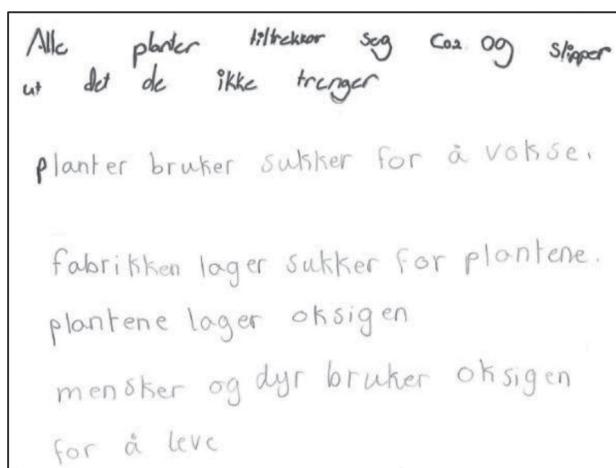 Alle planter tiltrekker seg Co2 og slipper
ut det de ikke trenger
planter bruker sukker for å vokse.
fabrikken lager sukker for plantene.
plantene lager oksigen
mensker og dyr bruker oksigen
for å leve